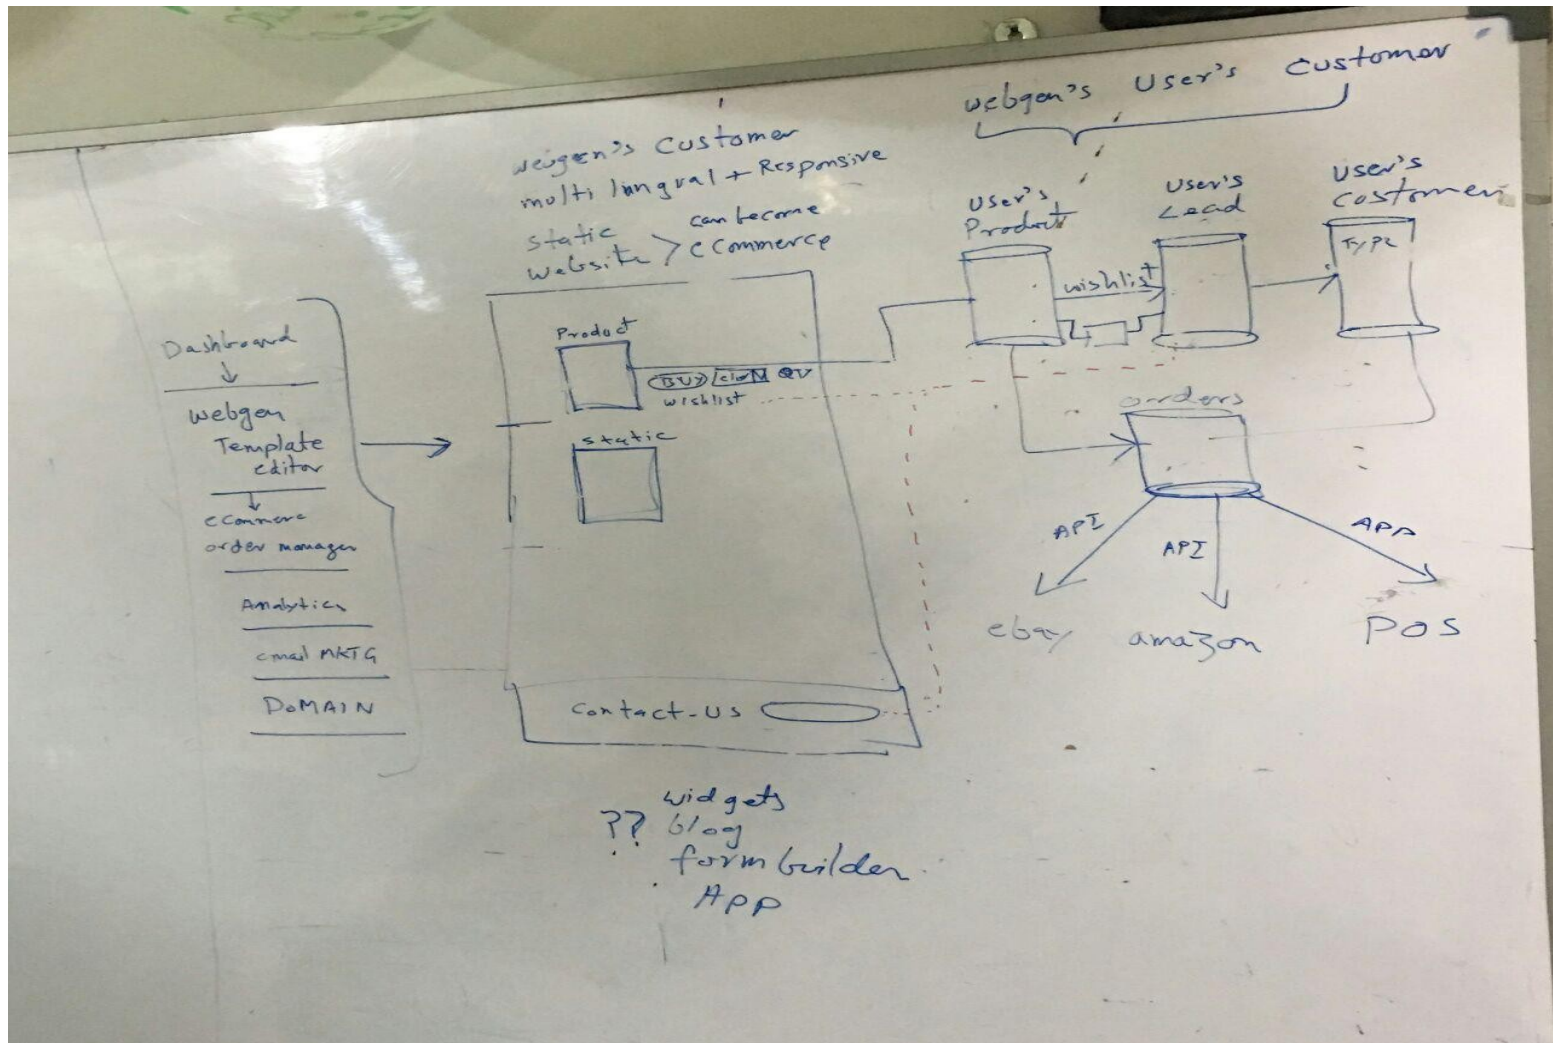 webgen's User's Customer
webgen's Customer
multi lingual + Responsive
static
website > can become
eCommerce
User's
Product
User's
Lead
User's
Customer
Type
wishlist
Dashboard
webgen
Template
editor
eCommerc
order manager
Analytics
email MKTG
DOMAIN
Product
BUY
QV
wishlist
static
Contact-US
orders
API
API
APP
ebay
amazon
POS
widgets
?? blog
form builder
APP